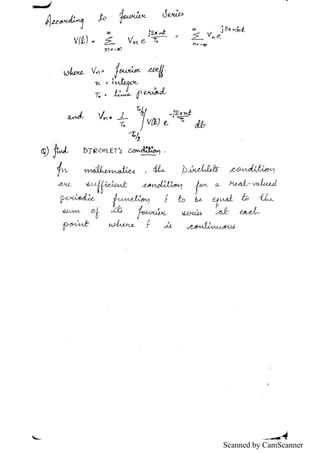 According to fourier Series
V(t) = ∞ Σ n=-∞ Vn e^(j2πnt/T₀) = ∞ Σ n=-∞ Vn e^(j2πnf₀t)
where Vn = fourier coeff
n = integer
T₀ = time period
and Vn = 1/T₀ ∫ T₀/2 -T₀/2 V(t) e^(-j2πnt/T₀) dt
Q) find DIRCHLET's condition.
In mathematics, the Dirichlets condition
are sufficient condition for a real-valued
periodic function f to be equal to the
sum of its fourier series at each
point where f is continuous
Scanned by CamScanner